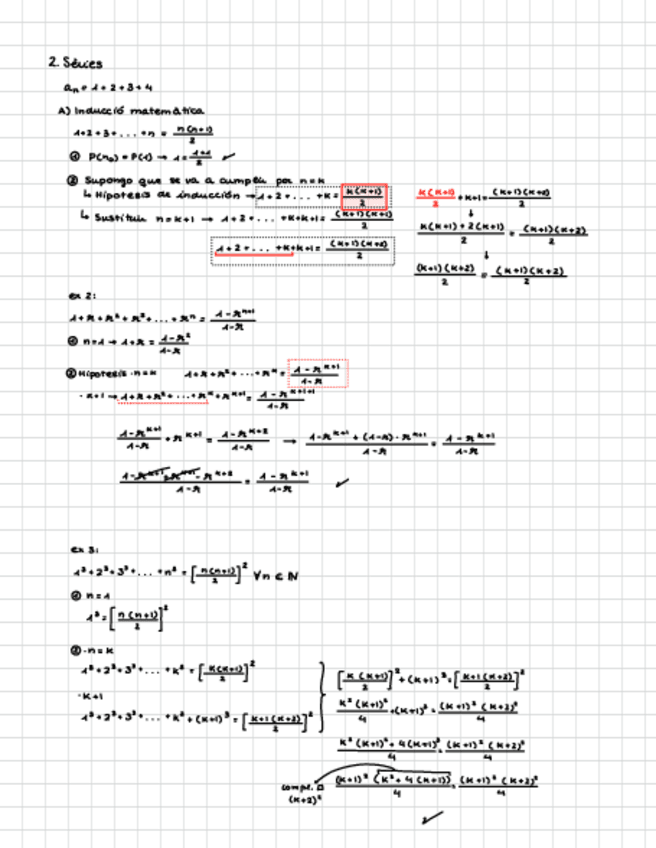 2. Sèries
aₙ = 1 + 2 + 3 + 4
A) Inducció matemàtica
1+2+3+...+n = n(n+1)/2
① P(n₀) = P(1) → 1 = 1+1/2 ✓
② Supongo que se va a cumplir por n=k
↳ Hipotesis de inducción → 1+2+...+k = k(k+1)/2
↳ Sustituir n=k+1 → 1+2+...+k+k+1 = (k+1)(k+1)/2
1+2+...+k+k+1 = (k+1)(k+2)/2
k(k+1)/2 + k+1 = (k+1)(k+2)/2
↓
k(k+1)+2(k+1)/2 = (k+1)(k+2)/2
↓
(k+1)(k+2)/2 = (k+1)(k+2)/2
ex 2:
1+r+r²+r³+...+rⁿ = 1-rⁿ⁺¹/1-r
① n=1 → 1+r = 1-r²/1-r
② Hipotesis · n=k 1+r+r²+...+rᵏ = 1-rᵏ⁺¹/1-r
· k+1 → 1+r+r²+...+rᵏ+rᵏ⁺¹ = 1-rᵏ⁺¹⁺¹/1-r
1-rᵏ⁺¹/1-r + rᵏ⁺¹ = 1-rᵏ⁺²/1-r → 1-rᵏ⁺¹+(1-r)·rⁿ⁺¹/1-r = 1-rᵏ⁺¹/1-r
-rᵏ⁺²/1-r = 1-rᵏ⁺¹/1-r ✓
ex 3:
1³+2³+3³+...+n³ = [n(n+1)/2]² ∀n ∈ ℕ
① n=1
1³ = [n(n+1)/2]²
② · n=k
1³+2³+3³+...+k³ = [k(k+1)/2]²
· k+1
1³+2³+3³+...+k³+(k+1)³ = [k+1(k+2)/2]²
[k(k+1)/2]²+(k+1)³ = [k+1(k+2)/2]²
k²(k+1)²/4 + (k+1)³ = (k+1)²(k+2)²/4
k²(k+1)²+4(k+1)³/4 = (k+1)²(k+2)²/4
(k+1)²(k²+4(k+1))/4 = (k+1)²(k+2)²/4
compl. □
(k+2)²
✓